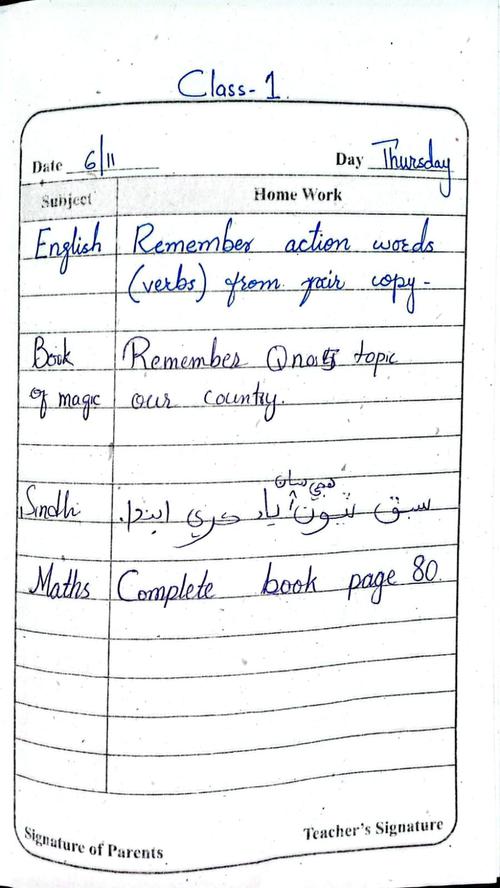 Class-1
Date 6/11 Day Thursday
Subject Home Work
English Remember action words
(verbs) from fair copy-
Book Remember Qno:5 topic
of magic our country.
هجي سان
Sindhi سبق ٽيون ياد ڪري ايندا.
Maths Complete book page 80.
Signature of Parents Teacher's Signature